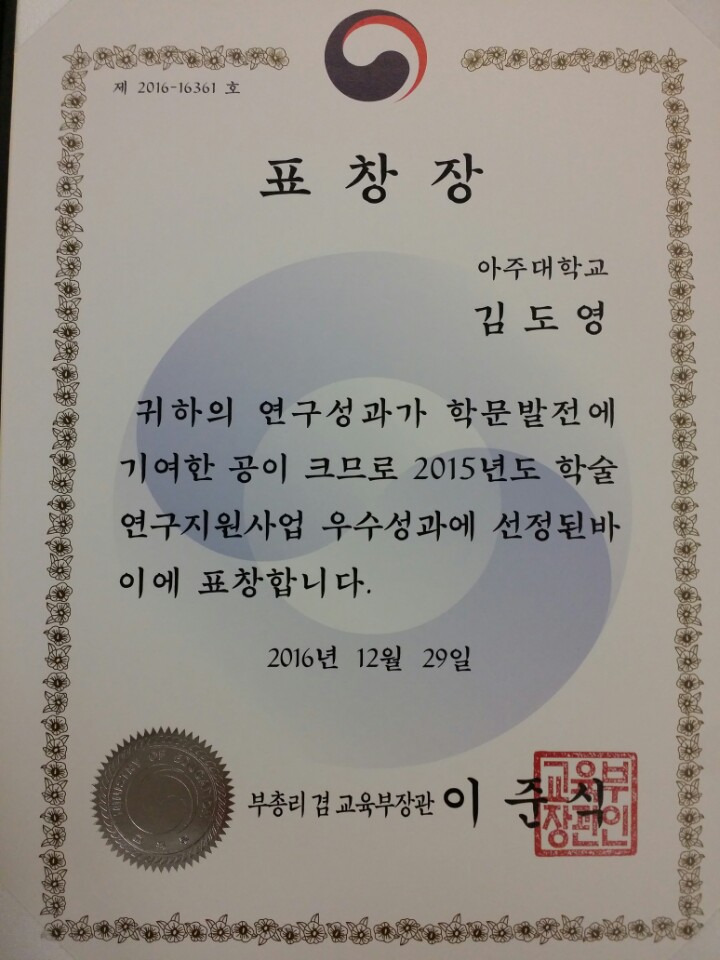 제 2016-16361 호
표 창 장
아주대학교
김 도 영
귀하의 연구성과가 학문발전에
기여한 공이 크므로 2015년도 학술
연구지원사업 우수성과에 선정된바
이에 표창합니다.
2016년 12월 29일
MINISTRY OF EDUCATION
부총리 겸 교육부장관 이 준 식
교육부
장관인